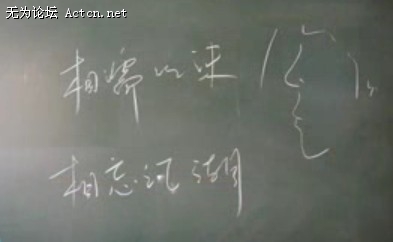 无为论坛 Actcn.net
相濡以沫
相忘江湖